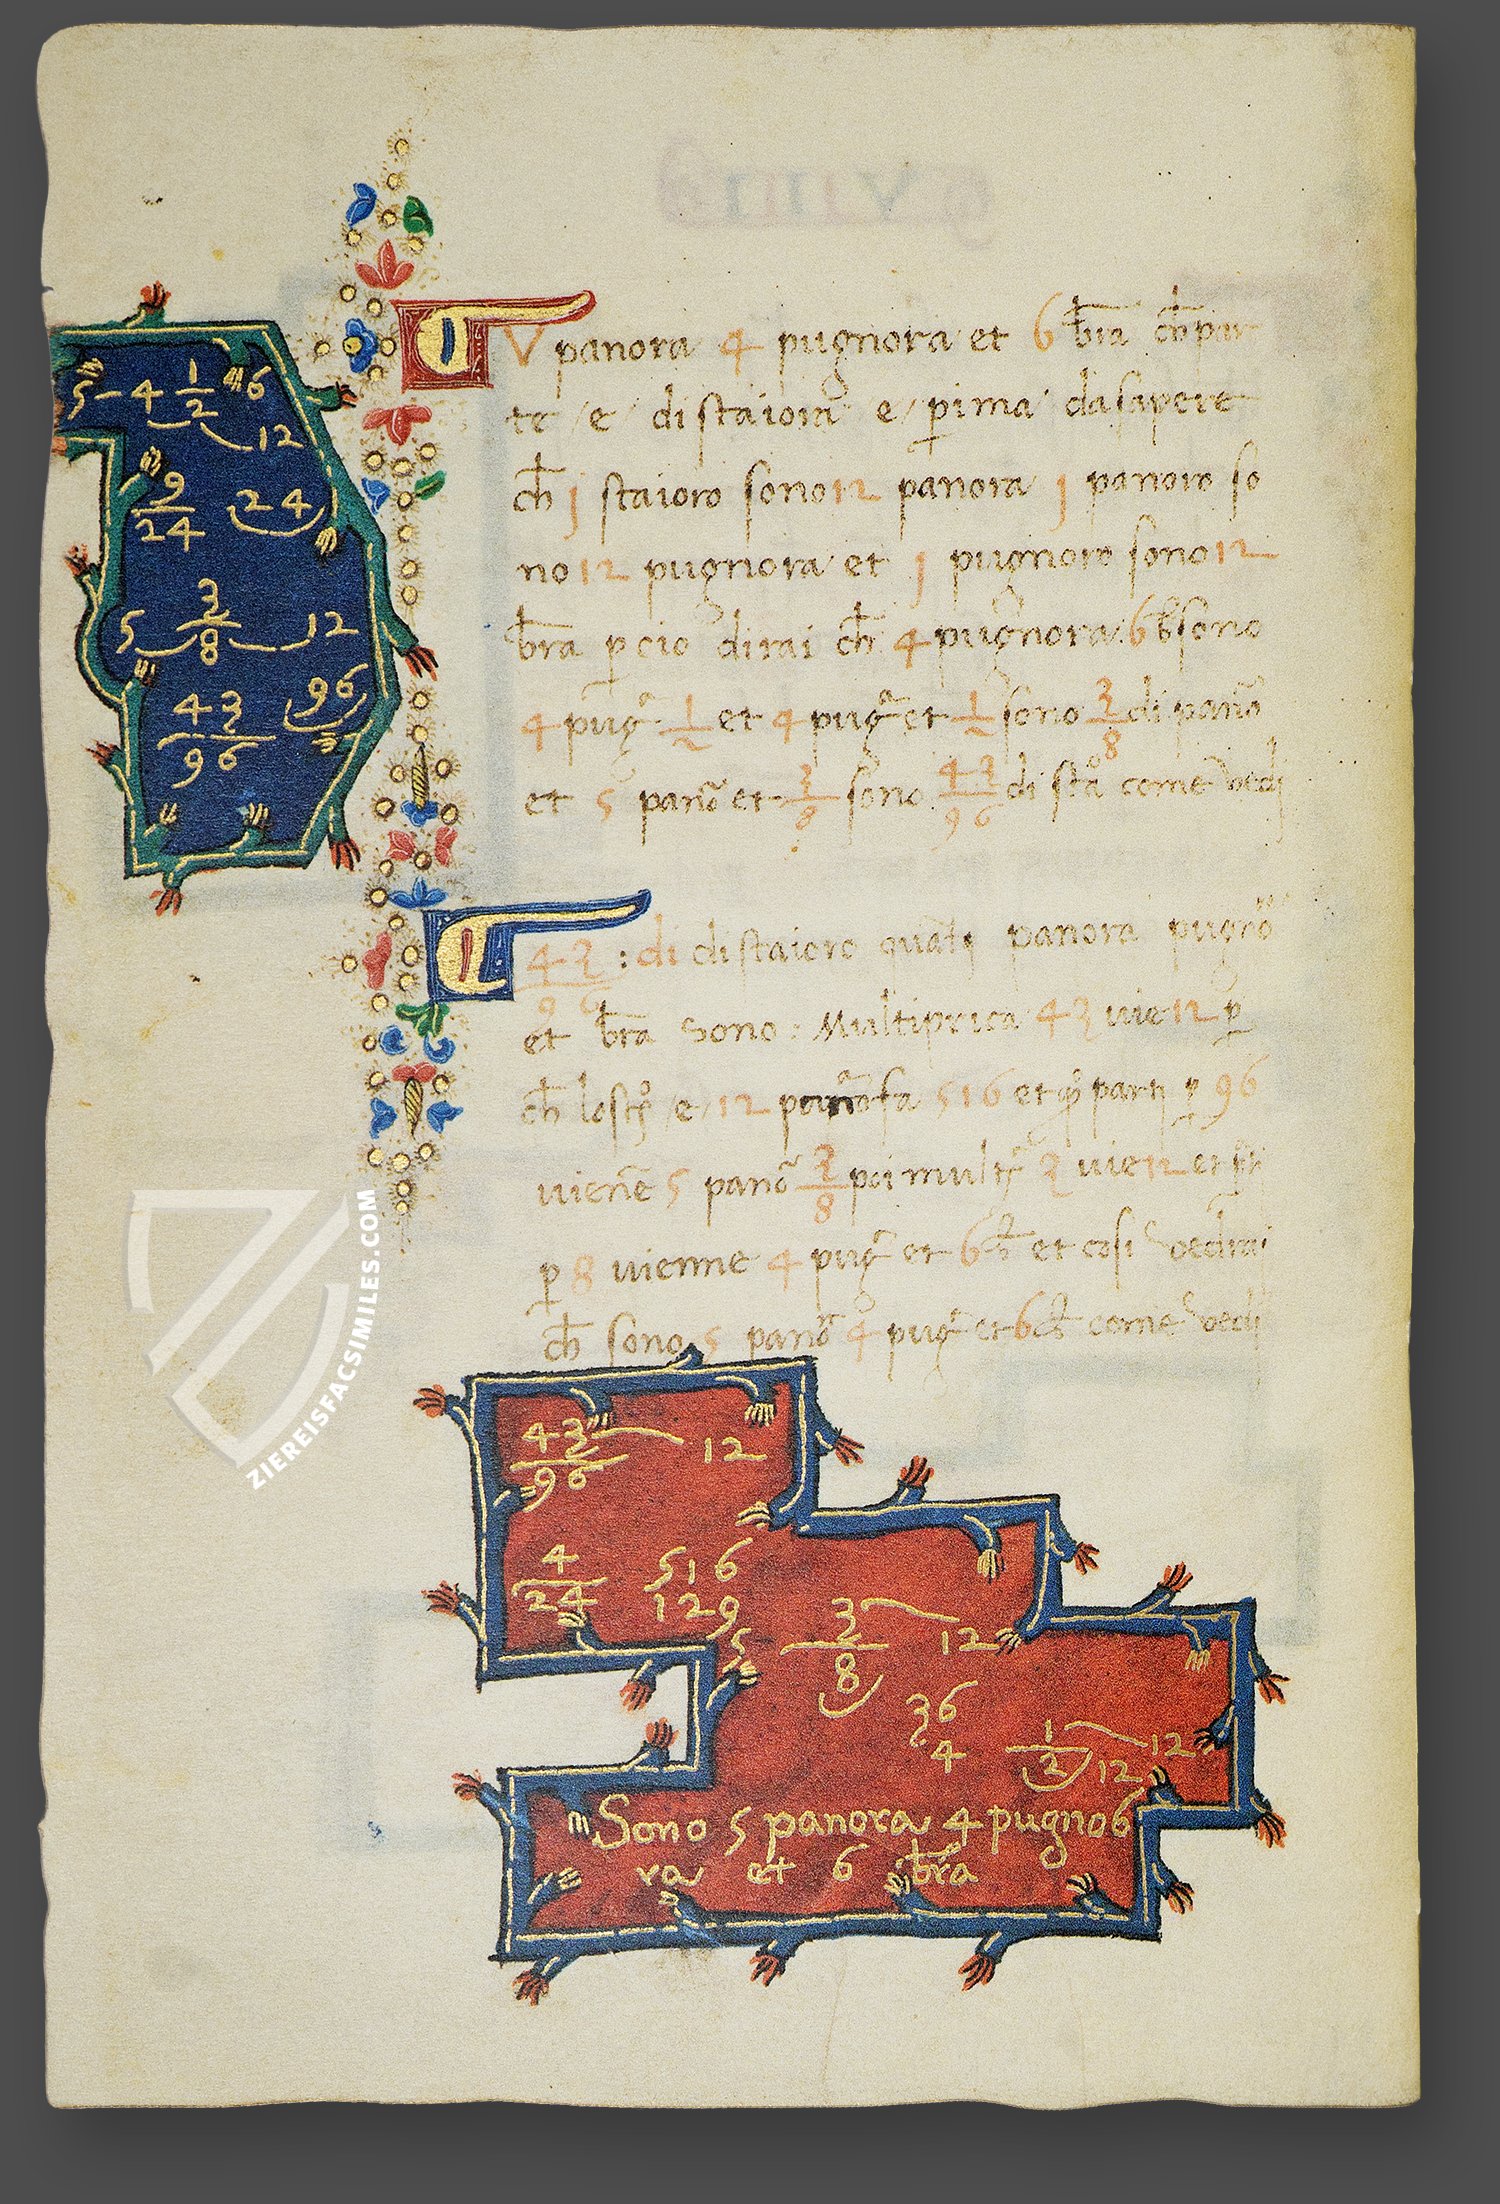 5 - 4 1/2 6
12
9/24 24
5 3/8 12
43/96 96
V panora 4 pugnora et 6 br̄a ch̄ par
te e di staiora e p̱ima da sapere
ch̄ 1 staioro sono 12 panora 1 panoro so
no 12 pugnora et 1 pugnoro sono 12
br̄a p̱cio dirai ch̄ 4 pugnora 6 b̄ sono
4 pugͣ 1/2 et 4 pugͣ et 1/2 sono 3/8 di pano͂
et 5 pano͂ et 3/8 sono 43/96 di staͦ come vedi
43/96 : di di staioro quati panora pugno͂
et br̄a sono : Multiprica 43 vie 12 p̱
ch̄ lo e 12 pano͂ fa 516 et parti p̱ 96
viene͂ 5 pano͂ 3/8 poi mult 3 vie 12 et
p̱ 8 vienne 4 pugͣ et 6 et cosi vedrai
ch̄ sono 5 pano͂ 4 pugͣ et 6 come vedi
43/96 12
4/24 516
129
5 3/8 12
36
4 1/2 12
12
Sono 5 panora 4 pugno 6
ra et 6 br̄a
ZIEREISFACSIMILES.COM